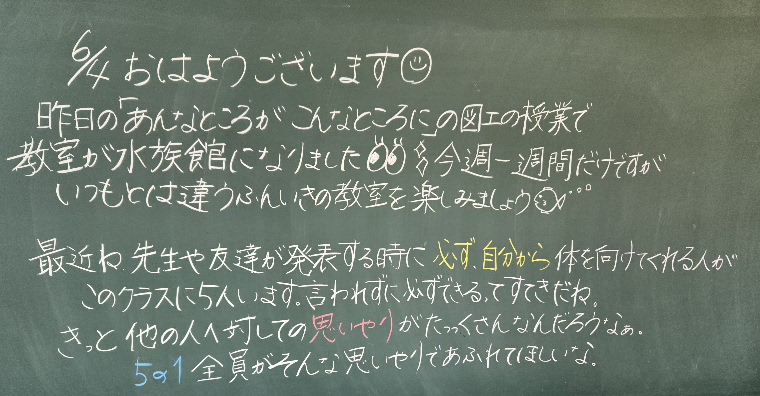 6/4 おはようございます
昨日の「あんなところが こんなところに」の図工の授業で
教室が水族館になりました 今週一週間だけですが
いつもとは違うふんいきの教室を楽しみましょう
最近ね、先生や友達が発表する時に 必ず、自分から 体を向けてくれる人が
このクラスに5人います。言われずに必ずできる、てすてきだね。
きっと 他の人へ対しての思いやりがたっくさんなんだろうなぁ。
5の1 全員がそんな思いやりであふれてほしいな。